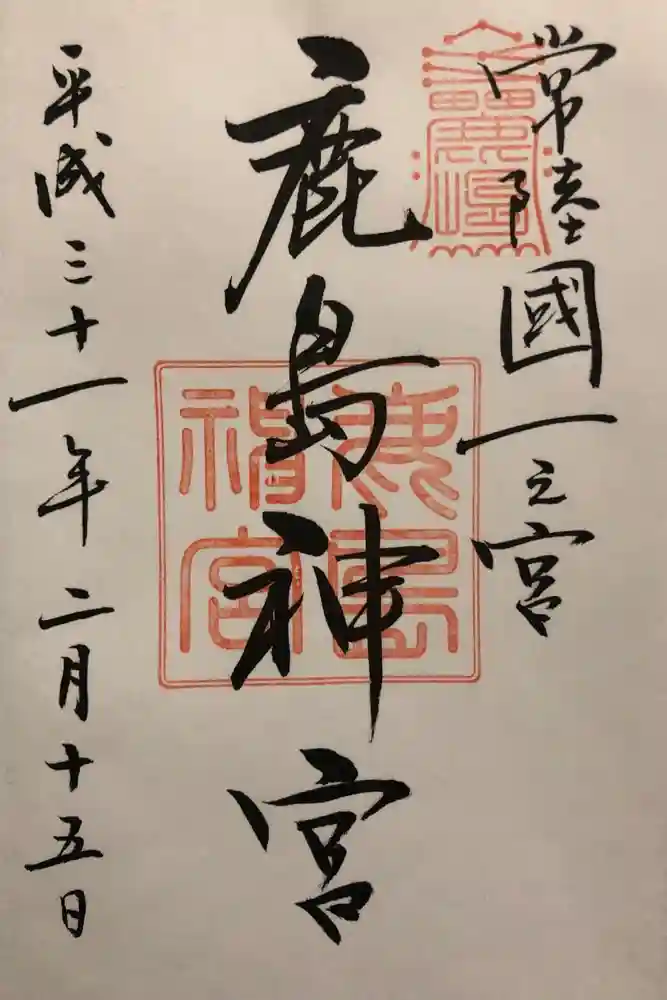 常陸國一之宮
鹿島神宮
鹿島神宮
平成三十一年二月十五日